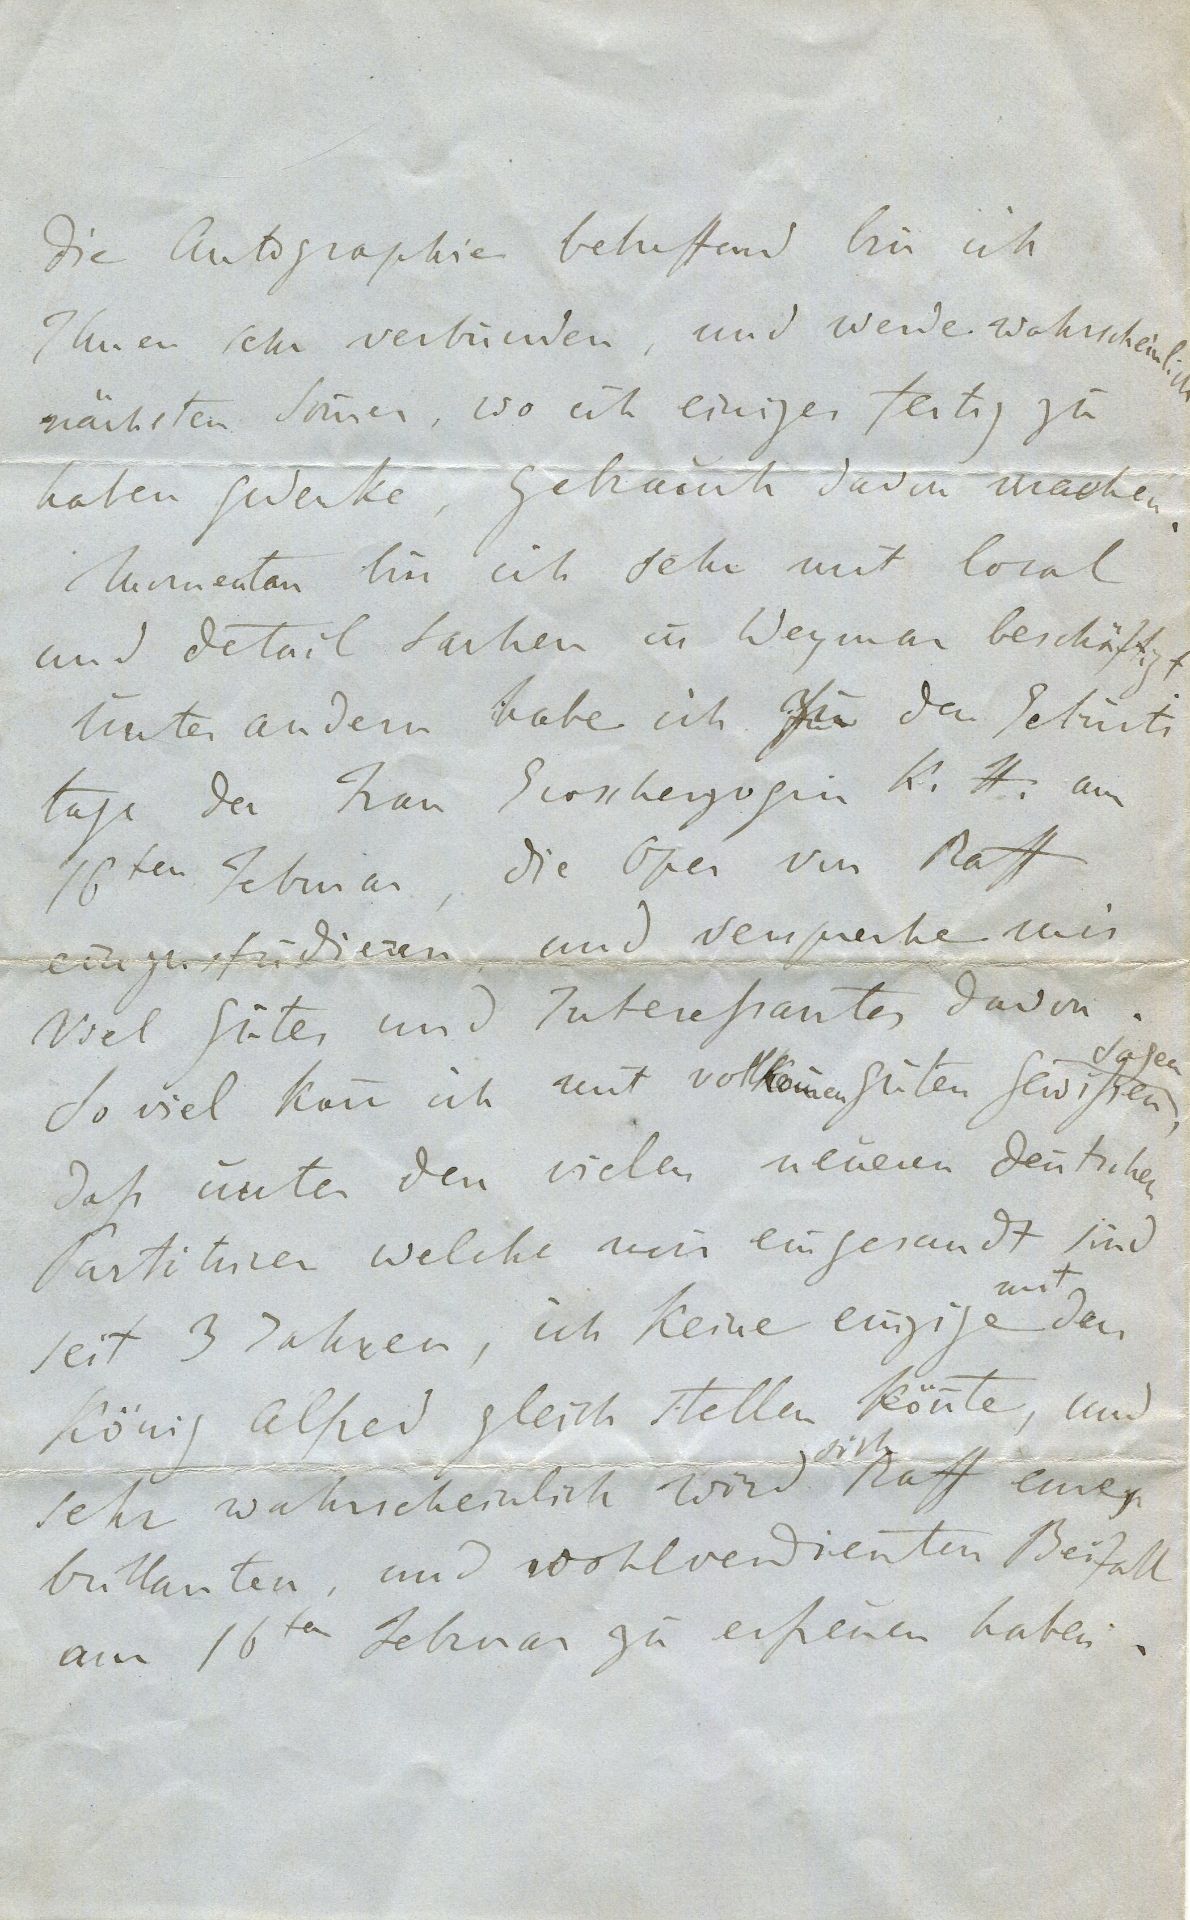 Die Autographie betreffend bin ich
Ihnen sehr verbunden, und werde wahrscheinlich
nächsten Som̄er, wo ich einiges fertig zu
haben gedenke, Gebrauch davon machen.
Momentan bin ich sehr mit local
und detail Sachen in Weymar beschäftigt
Unter andern habe ich zu den Geburts
tage der Frau Grossherzogin K. H. am
16ten Februar, die Oper von Raff
einzustudieren, und verspreche mir
viel Gutes und Interessantes davon.
So viel kan̄ ich mit vollkom̄en guten Gewissen sagen,
daß unter den vielen neueren deutschen
Partituren welche mir eingesandt sind
seit 3 Jahren, ich keine einzige mit den
König Alfred gleich stellen kön̄te, und
sehr wahrscheinlich wird sich Raff einen
brillanten, und wohlverdienten Beifall
am 16ten Februar zu erfreuen haben.